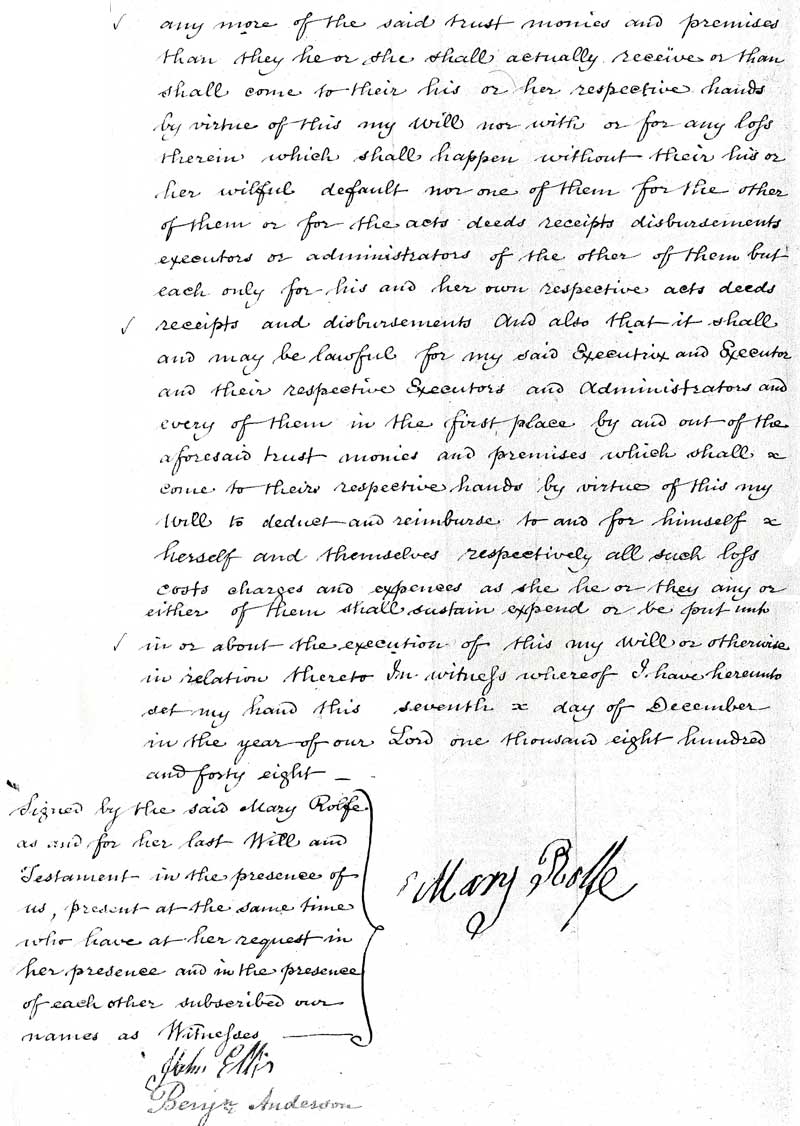 any more of the said trust monies and premises
than they he or she shall actually receive or than
shall come to their his or her respective hands
by virtue of this my Will nor with or for any loſs
therein which shall happen without their his or
her wilful default nor one of them for the other
of them or for the acts deeds receipts disbursements
executors or administrators of the other of them but
each only for his and her own respective acts deeds
receipts and disbursements And also that it shall
and may be lawful for my said Executrix and Executor
and their respective Executors and Administrators and
every of them in the first place by and out of the
aforesaid trust monies and premises which shall x
come to theirs respective hands by virtue of this my
Will to deduct and reimburse to and for himself x
herself and themselves respectively all such loſs
costs charges and expences as she he or they any or
either of them shall sustain expend or be put unto
in or about the execution of this my Will or otherwise
in relation thereto In witneſs whereof I have hereunto
set my hand this seventh x day of December
in the year of our Lord one thousand eight hundred
and forty eight —
Signed by the said Mary Rolfe
as and for her last Will and
Testament in the presence of
us, present at the same time
who have at her request in
her presence and in the presence
of each other subscribed our
names as Witneſses
Mary Rolfe
John Ellis
Benjn Anderson